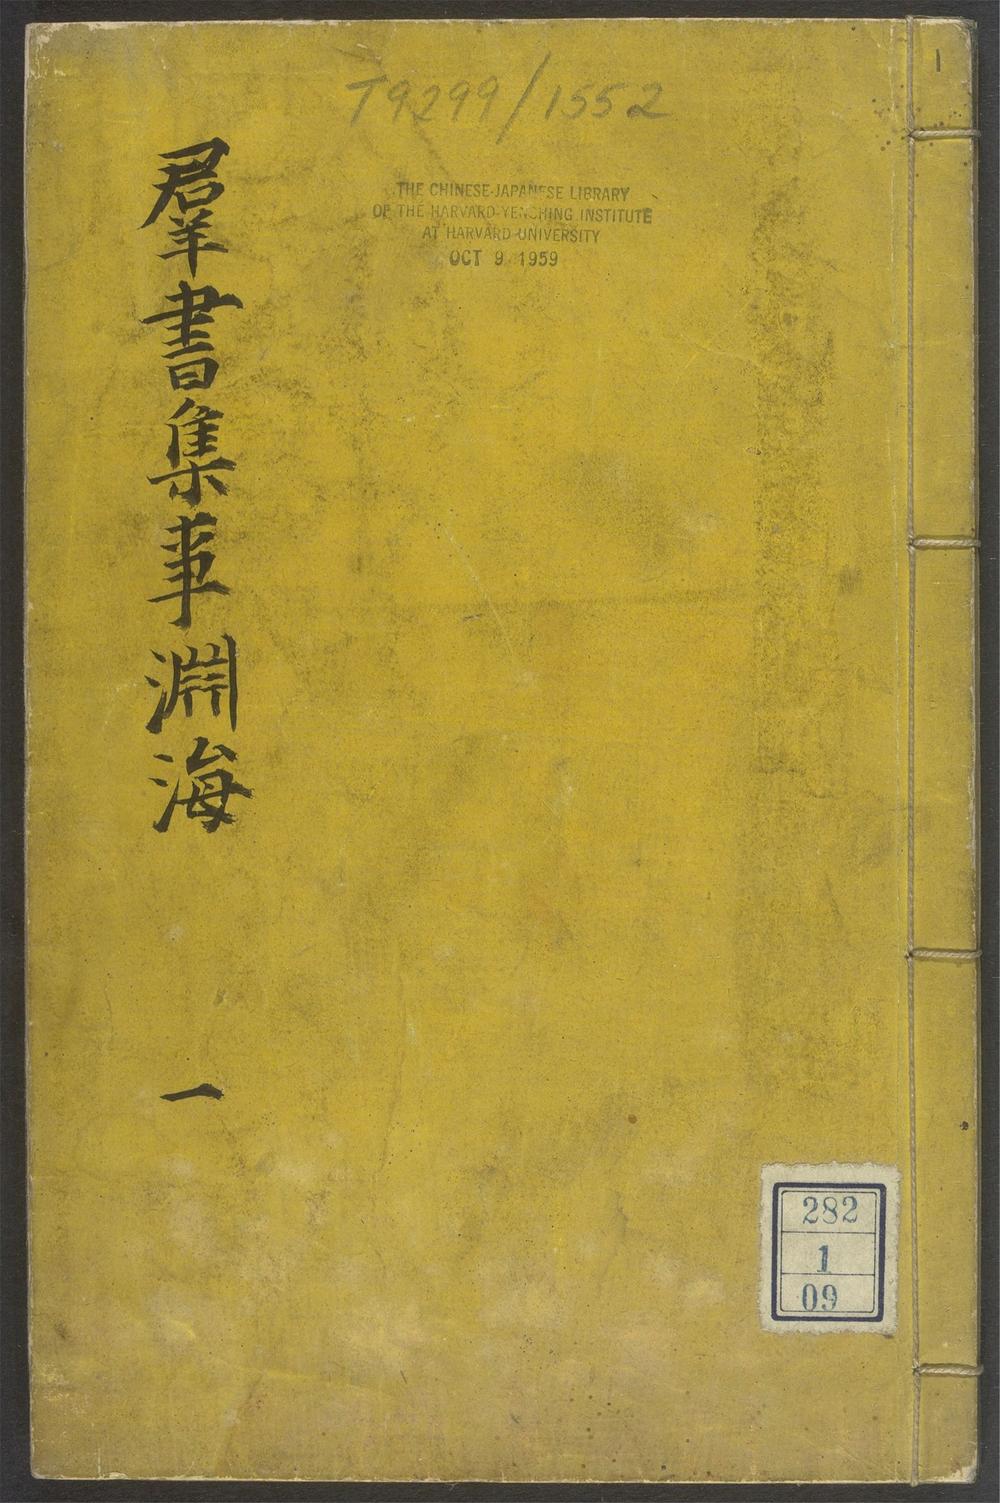 T9299/1552
1
THE CHINESE-JAPANESE LIBRARY
OF THE HARVARD-YENCHING INSTITUTE
AT HARVARD UNIVERSITY
OCT 9 1959
羣書集事淵海
一
282
1
09